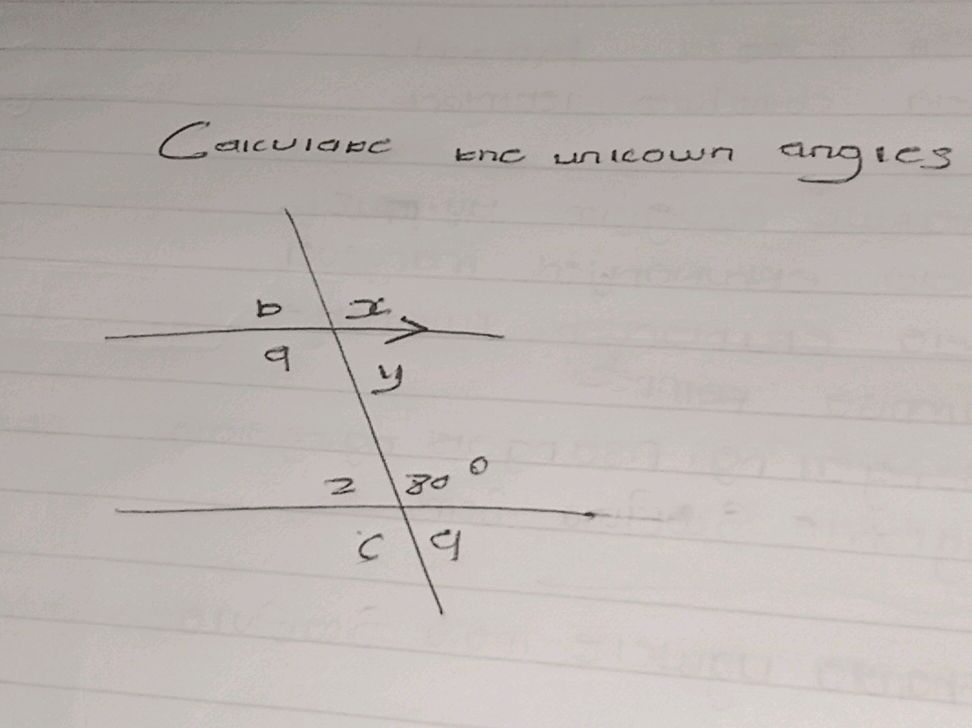 Calculate the unkown angles
b x
a y
z 80°
c q